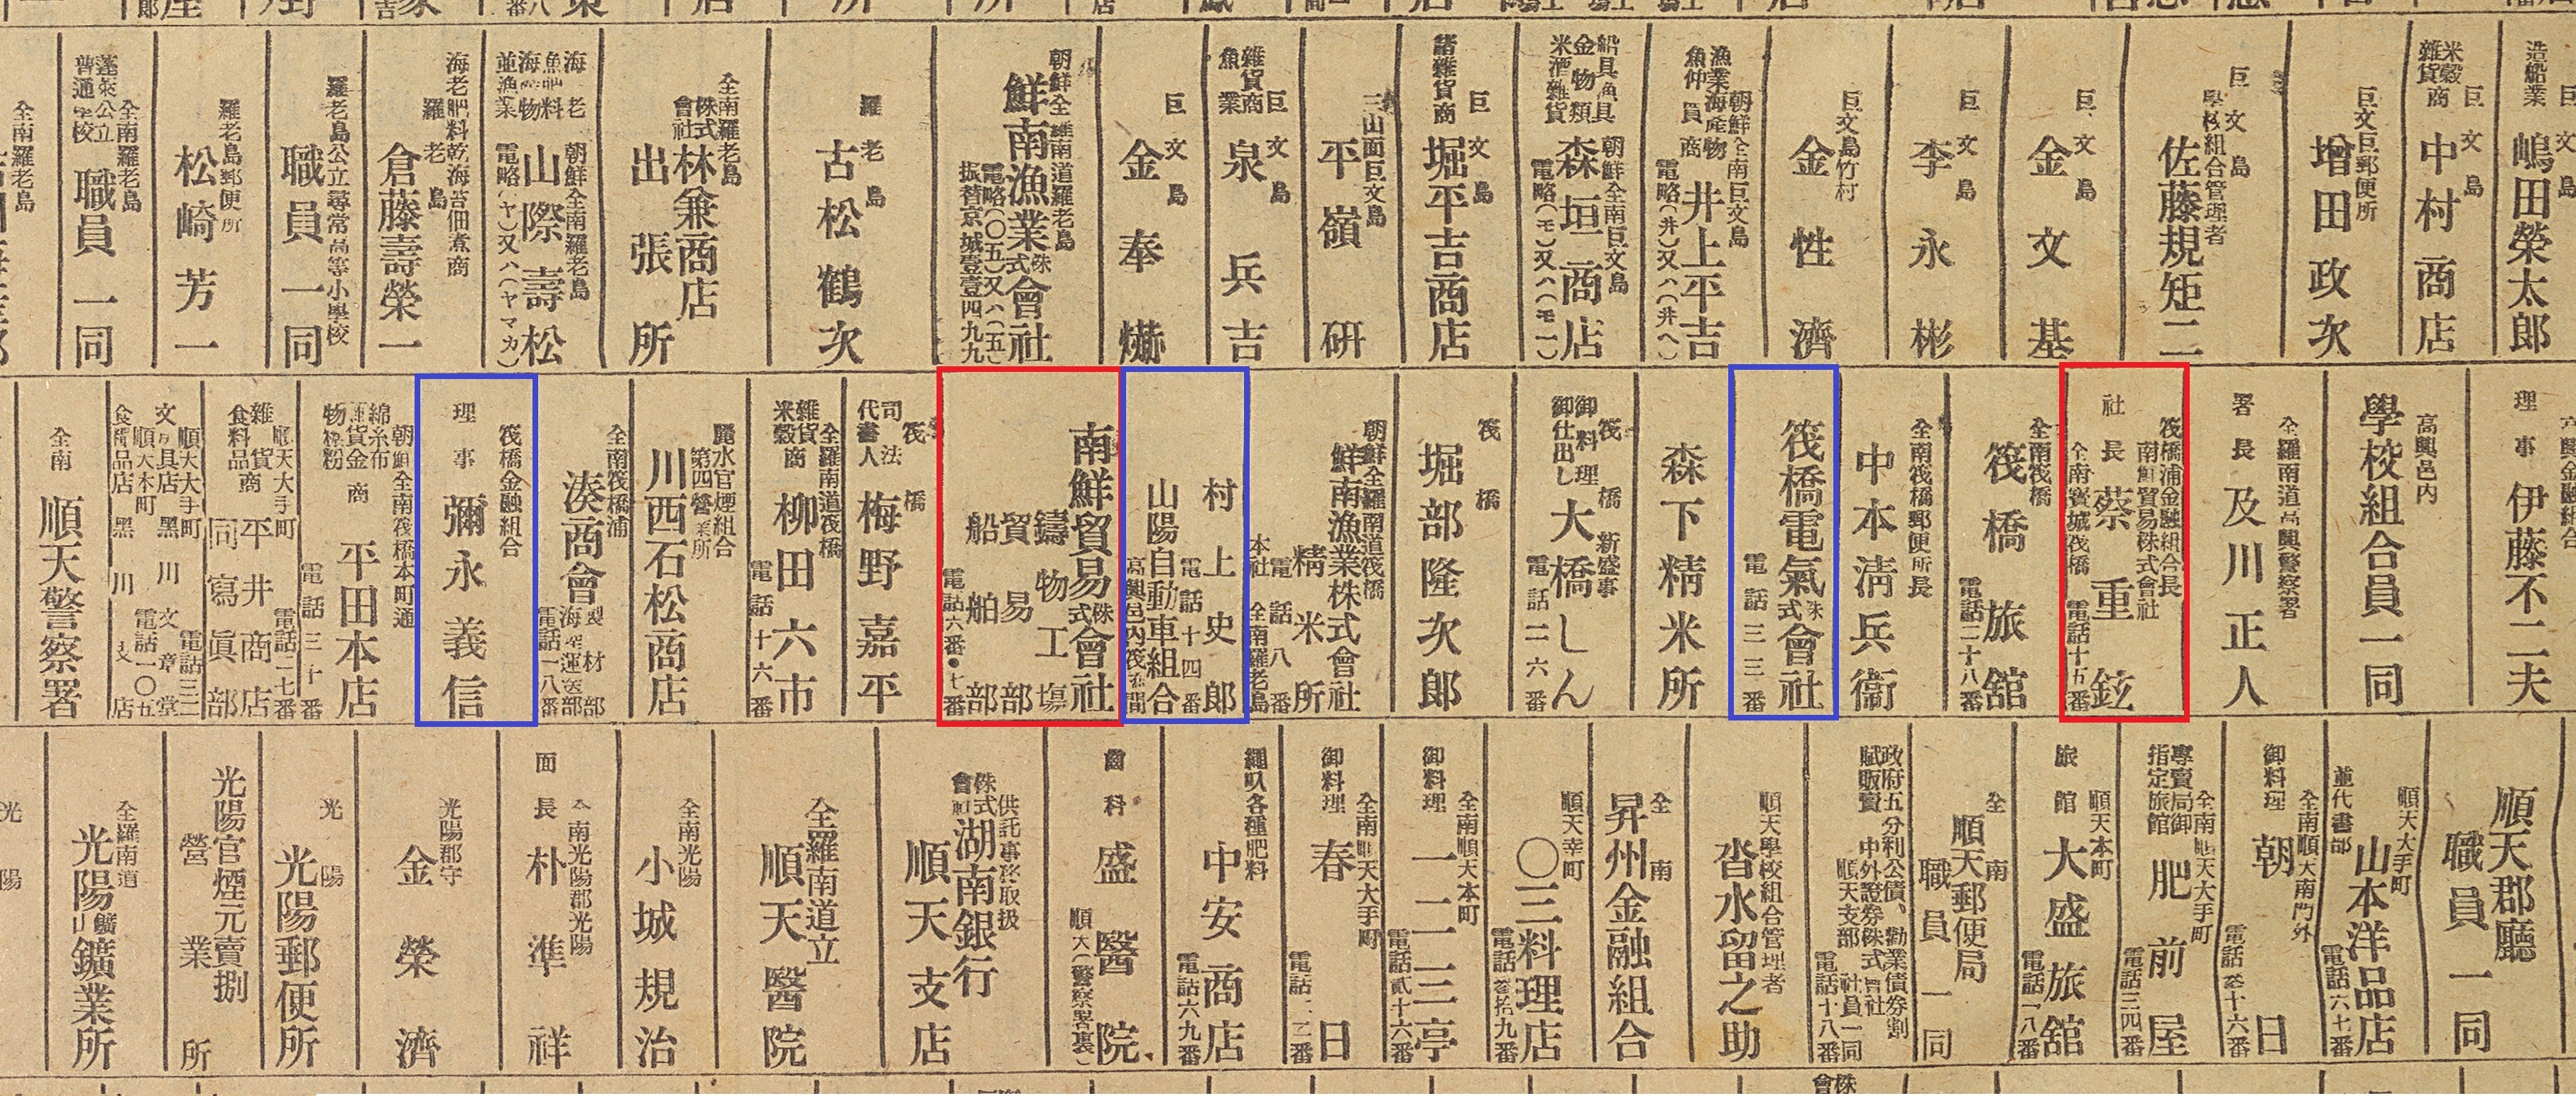 造船業
巨文島
嶋田榮太郎
米穀
雜貨商
巨文島
中村商店
巨文巨郵便所
增田政次
巨文島
學校組合管理者
佐藤規矩二
巨文島
金文基
巨文島
李永彬
巨文島竹村
金性濟
朝鮮全南巨文島
漁業海産物
魚仲買商
井上平吉
電略(井)又ハ(井へ)
船具漁具
金物類
米酒雜貨
朝鮮全南巨文島
森垣商店
電略(モ)又ハ(モ一)
諸雜貨商
巨文島
堀平吉商店
三山面巨文島
平嶺研
雜貨商
魚業
巨文島
泉兵吉
巨文島
金奉爀
朝鮮全羅南道羅老島
鮮南漁業株式會社
電略(〇五)又ハ(五)
振替京城壹壹四九九
羅老島
古松鶴次
全南羅老島
株式會社林兼商店
出張所
海老
魚肥料
海産物
並漁業
朝鮮全南羅老島
山際壽松
電略(ヤ)又ハ(ヤマカ)
海老肥料乾海苔佃煮商
羅老島
倉藤壽榮一
羅老島公立尋常高等小學校
職員一同
羅老島郵便所
松崎芳一
全南羅老島
蓬萊公立
普通學校
職員一同
全南羅老島
理事
伊藤不二夫
高興邑內
學校組合員一同
全羅南道高興警察署
署長
及川正人
筏橋浦金融組合長
南鮮貿易株式會社
社長
蔡重鉉
全南寶城筏橋
電話十五番
全南筏橋
筏橋旅館
電話二十八番
全南筏橋郵便所長
中本淸兵衞
筏橋電氣株式會社
電話三三番
森下精米所
御料理
御仕出し
筏橋
新盛事
大橋しん
電話二六番
筏橋
堀部隆次郎
朝鮮全羅南道筏橋
鮮南漁業株式會社
精米所
電話八番
本社 全南羅老島
村上史郎
電話十四番
山陽自動車組合
高興邑內筏橋間
南鮮貿易株式會社
鑄物工場
貿易部
船舶部
電話六番・七番
司法
代書人
筏橋
梅野嘉平
全羅南道筏橋
雜貨
米穀商
柳田六市
電話十六番
麗水官煙組合
第四營業所
川西石松商店
全南筏橋浦
湊商會
製材部
海陸運送部
電話一八番
筏橋金融組合
理事
彌永義信
朝鮮全南筏橋本町通
綿糸布
雜貨金
物穀粉
商
平田本店
電話三十番
順天大手町
雜貨商
食料品
電話二七番
平井商店
同寫眞部
順天大手町
文房具店
電話三三
黑川文章堂
順天本町
電話一〇五
食料品店
黑川支店
全南
順天警察署
順天郡廳
職員一同
順天大手町
並代書部
山本洋品店
電話六七番
全南順天南門外
御料理
朝日
電話參十六番
專賣局御
指定旅館
全南順天大手町
肥前屋
電話三四番
旅館
順天本町
大盛旅館
電話一八番
全南
順天郵便局
職員一同
政府五分利公債、勸業債券割
賦販賣 中外證券株式會社
順天支部 社員一同
電話十八番
順天學校組合管理者
沓水留之助
全南
昇州金融組合
順天幸町
〇三料理店
電話參拾九番
全南順天本町
御料理
一二三亭
電話貳十六番
全南順天大手町
御料理
春日
電話一二番
繩叺各種肥料
中安商店
電話六九番
齒科
盛醫院
順天(警察署裏)
供託事務取扱
株式會社湖南銀行
順天支店
全羅南道立
順天醫院
全南光陽
小城規治
全南光陽郡光陽
面長
朴準祥
光陽郡守
金榮濟
光陽
光陽郵便所
光陽官煙元賣捌
營業所
全羅南道
光陽鑛山鑛業所
光陽